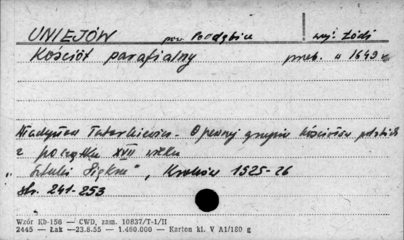 UNIEJÓW pow Poddębice woj. Łódź
Kościół parafialny przeb. w 1649 r.
Władysław Tatarkiewicz - O pewnej grupie kościołów polskich
z początku XVII wieku
"Sztuki Piękne", Kraków 1925-26
str. 241-253
Wzór Kb-156 — CWD, zam. 10837/T-1/H
2445 — Łak —23.8.55 — 1.480.000 — Karton kl. V A1/180 g